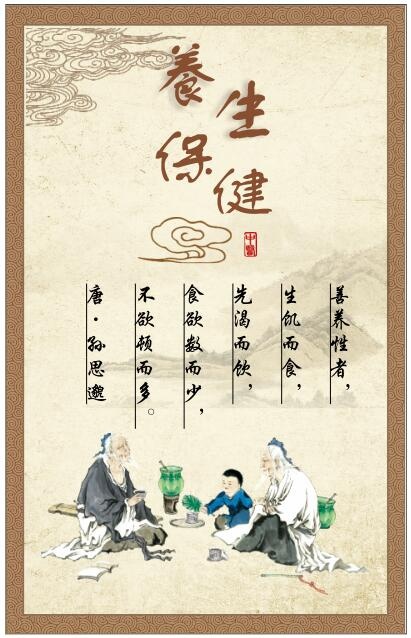 養生
保健
中醫
善养性者，
生饥而食，
先渴而饮，
食欲数而少，
不欲顿而多。
唐·孙思邈